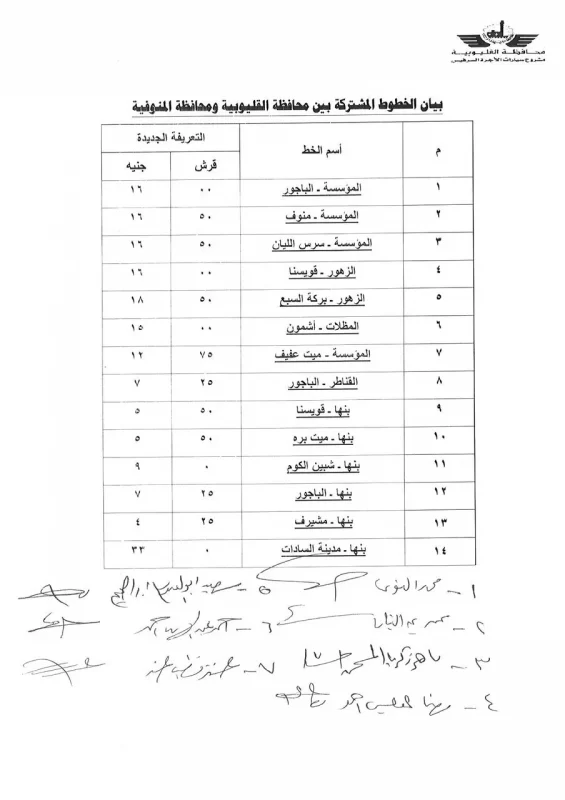 محافظة القليوبية
مشروع سيارات الأجرة السرفيس
بيان الخطوط المشتركة بين محافظة القليوبية ومحافظة المنوفية
م أسم الخط التعريفة الجديدة
قرش جنيه
١ المؤسسة - الباجور ٠٠ ١٦
٢ المؤسسة - منوف ٥٠ ١٦
٣ المؤسسة - سرس الليان ٥٠ ١٦
٤ الزهور - قويسنا ٠٠ ١٦
٥ الزهور - بركة السبع ٥٠ ١٨
٦ المظلات - أشمون ٠٠ ١٥
٧ المؤسسة - ميت عفيف ٧٥ ١٢
٨ القناطر - الباجور ٢٥ ٧
٩ بنها - قويسنا ٥٠ ٥
١٠ بنها - ميت بره ٥٠ ٥
١١ بنها - شبين الكوم ٠ ٩
١٢ بنها - الباجور ٢٥ ٧
١٣ بنها - مشيرف ٢٥ ٤
١٤ بنها - مدينة السادات ٠ ٣٣
١ -
٢ -
٣ - ٧ -
٤ -